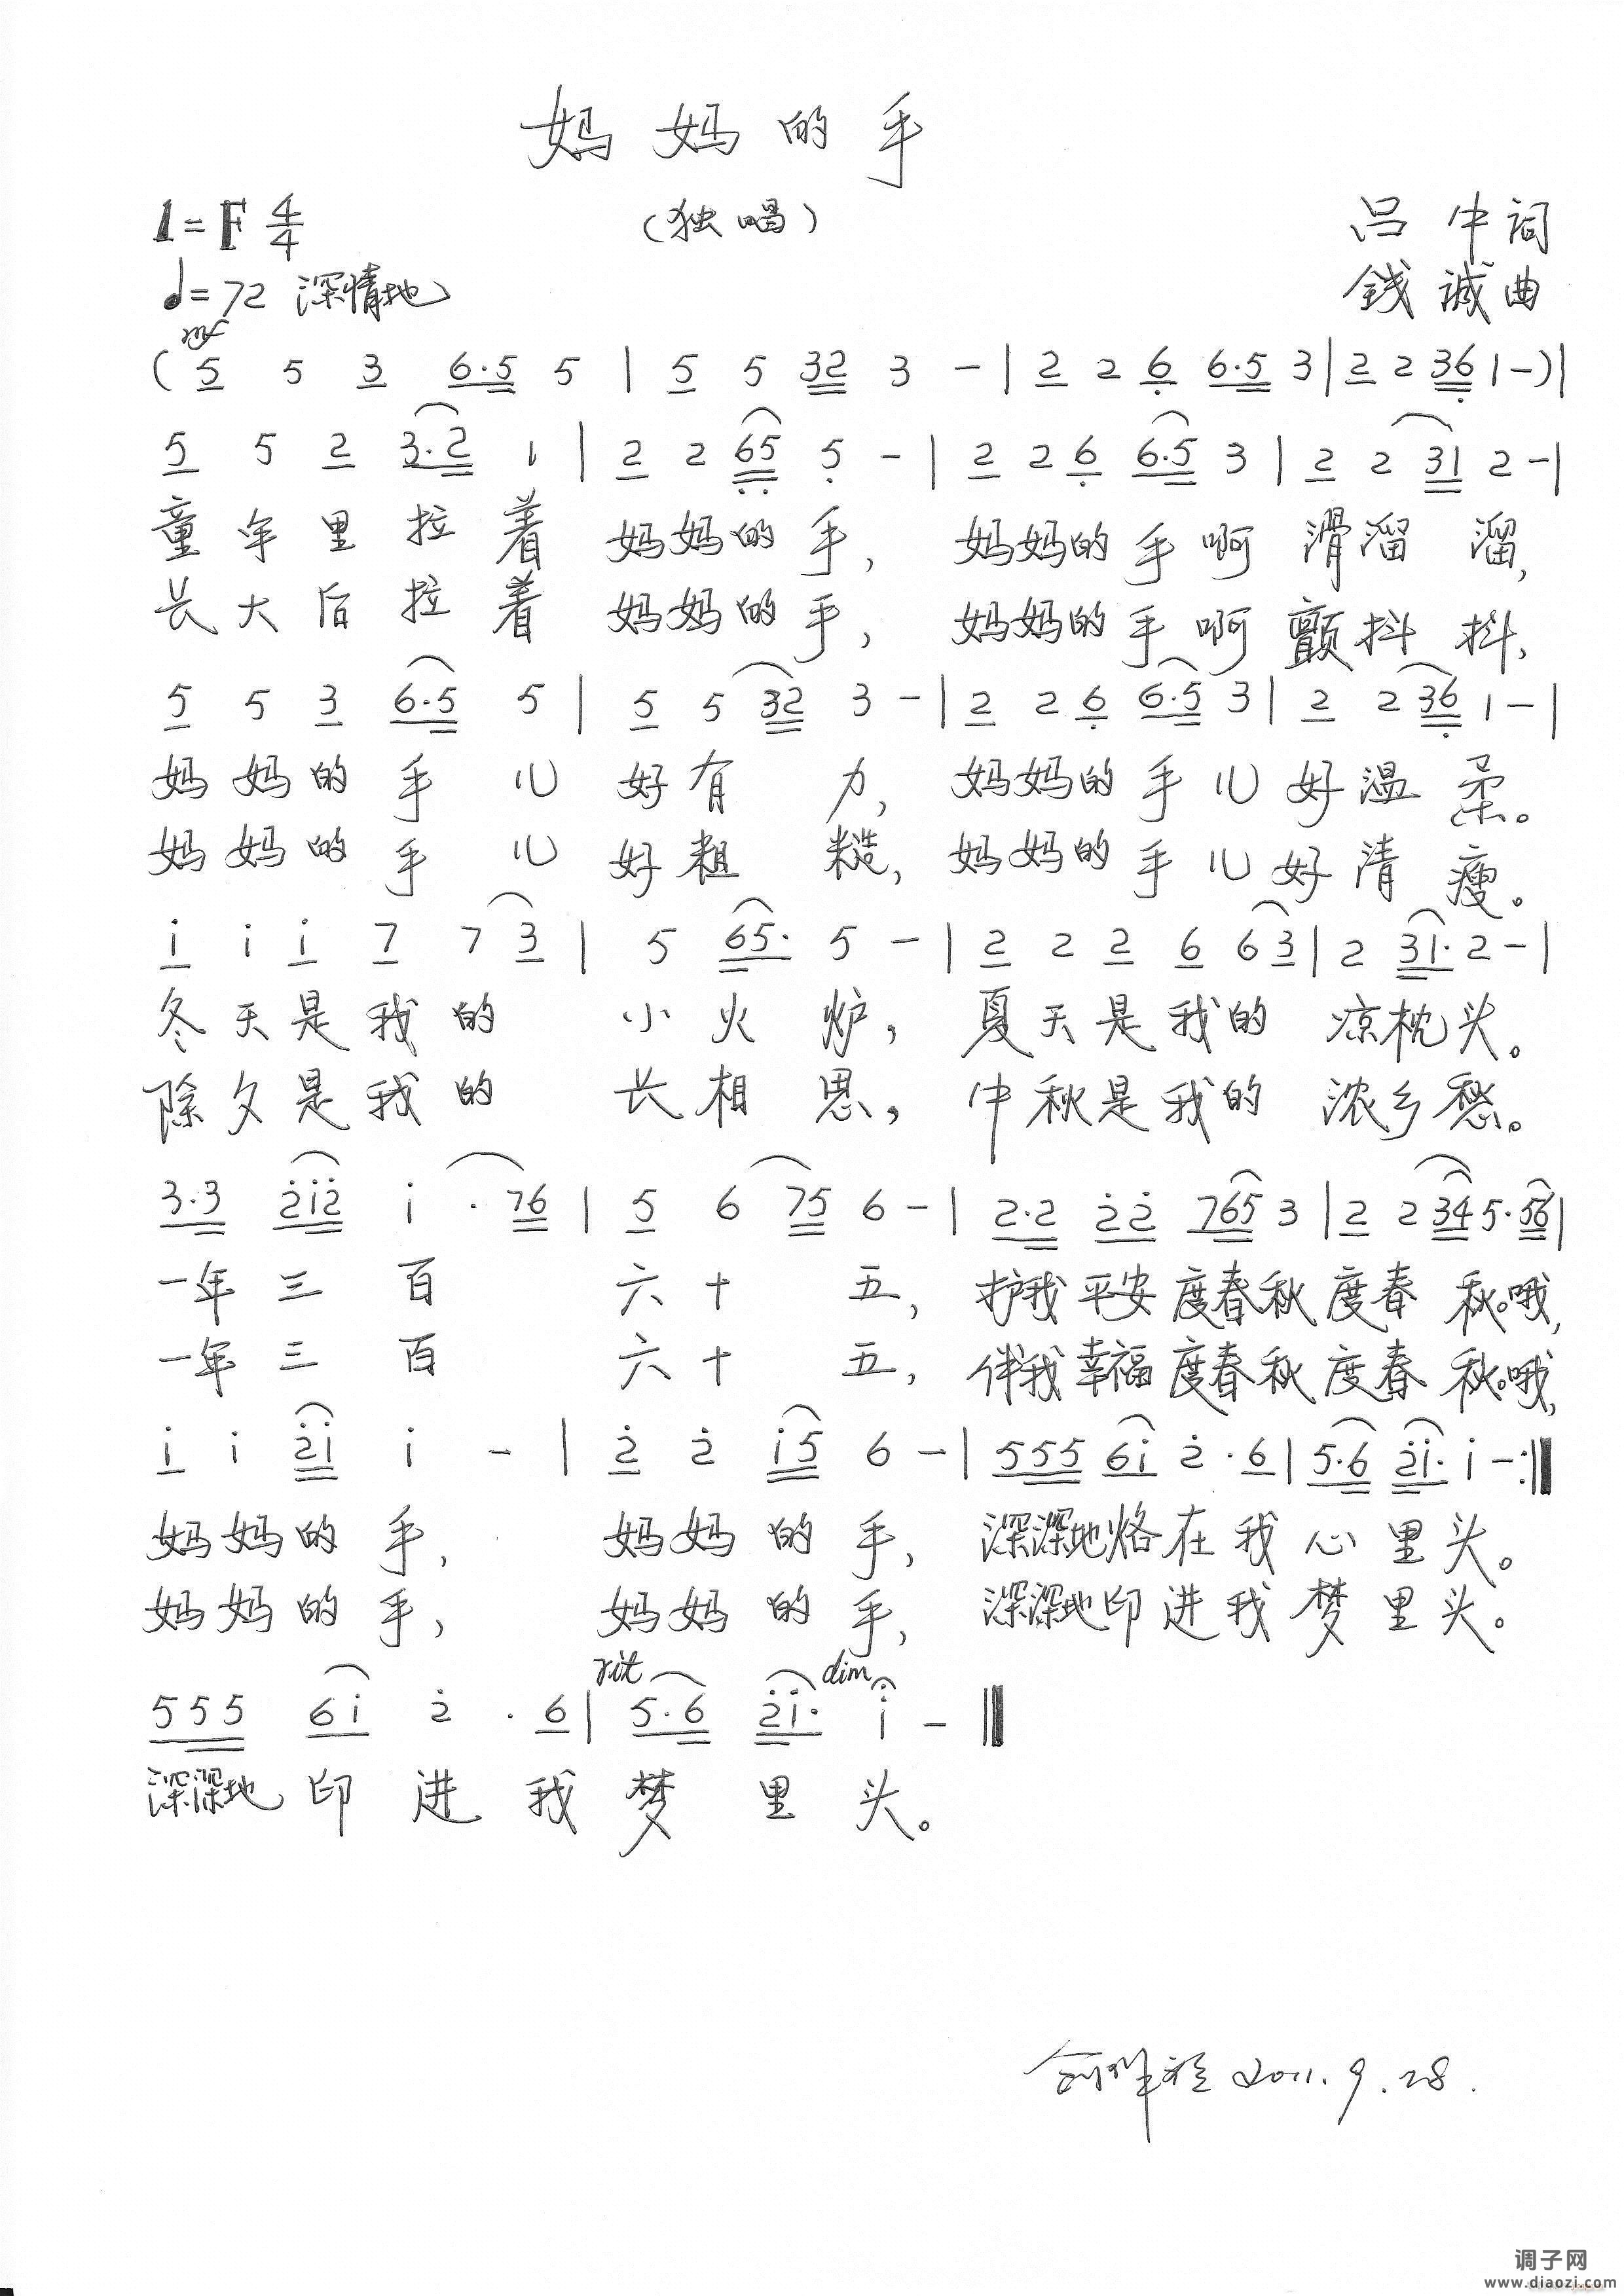 妈妈的手
1=F 4/4
（独唱）
吕中词
♩=72 深情地
錢诚曲
mf
( 5 5 3 6·5 5 | 5 5 32 3 - | 2 2 6 6·5 3 | 2 2 36 1 - ) |
5 5 2 3·2 1 | 2 2 65 5 - | 2 2 6 6·5 3 | 2 2 31 2 - |
童年里拉着 妈妈的手， 妈妈的手啊 滑溜溜，
长大后拉着 妈妈的手， 妈妈的手啊 颤抖抖，
5 5 3 6·5 5 | 5 5 32 3 - | 2 2 6 6·5 3 | 2 2 36 1 - |
妈妈的手儿 好有力， 妈妈的手儿 好温柔。
妈妈的手儿 好粗糙， 妈妈的手儿 好清瘦。
i i i 7 7 3 | 5 65· 5 - | 2 2 2 6 6 3 | 2 31· 2 - |
冬天是我的 小火炉， 夏天是我的 凉枕头。
除夕是我的 长相思， 中秋是我的 浓乡愁。
3·3 2̇i2̇ i · 76 | 5 6 75 6 - | 2·2 2̇2̇ 765 3 | 2 2 34 5·56 |
一年三百 六十五， 护我平安度春秋度春秋。哦，
一年三百 六十五， 伴我幸福度春秋度春秋。哦，
i i 2̇i i - | 2̇ 2̇ i5 6 - | 555 6i 2̇·6 | 5·6 2̇i· i - :‖
妈妈的手， 妈妈的手， 深深地烙在我心里头。
妈妈的手， 妈妈的手， 深深地印进我梦里头。
rit dim
555 6i 2̇·6 | 5·6 2̇i· i - ‖
深深地印进我梦里头。
2011.9.28.
调子网
www.diaozi.com